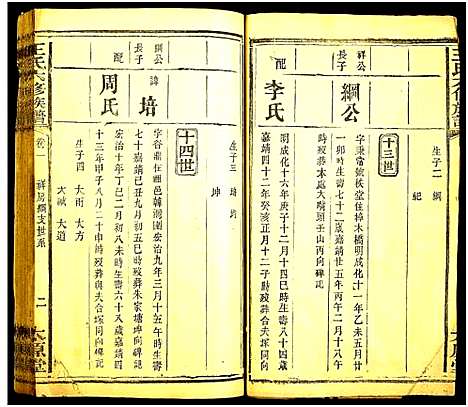 王氏六修族譜
生子二 綱
紀
十三世
祥公
長子
綱公
配
李氏
字秉常號松堂住樟木橋明成化十一年乙未五月廿
一卯時生壽七十二歲嘉靖廿五年丙午二月十八午
時歿葬木處大嘴頭壬山丙向碑記
成化十六年庚子二月十四巳時生壽八十四歲
嘉靖四十二年癸亥正月十二子時歿葬合夫塚同向
生子三 培
坤
十四世
綱公
長子
諱
培
配
周氏
弘治九年三月十五午時生壽
七十歲嘉靖
弘治十年丁巳二月初八未時生壽六十八歲嘉靖四
十三年甲子八月二十申時歿葬與夫合塚同向
生子四 大雨 大方
大誠 大道
王氏六修族譜
卷一
祥房綱支世系
二
太原堂
太原堂